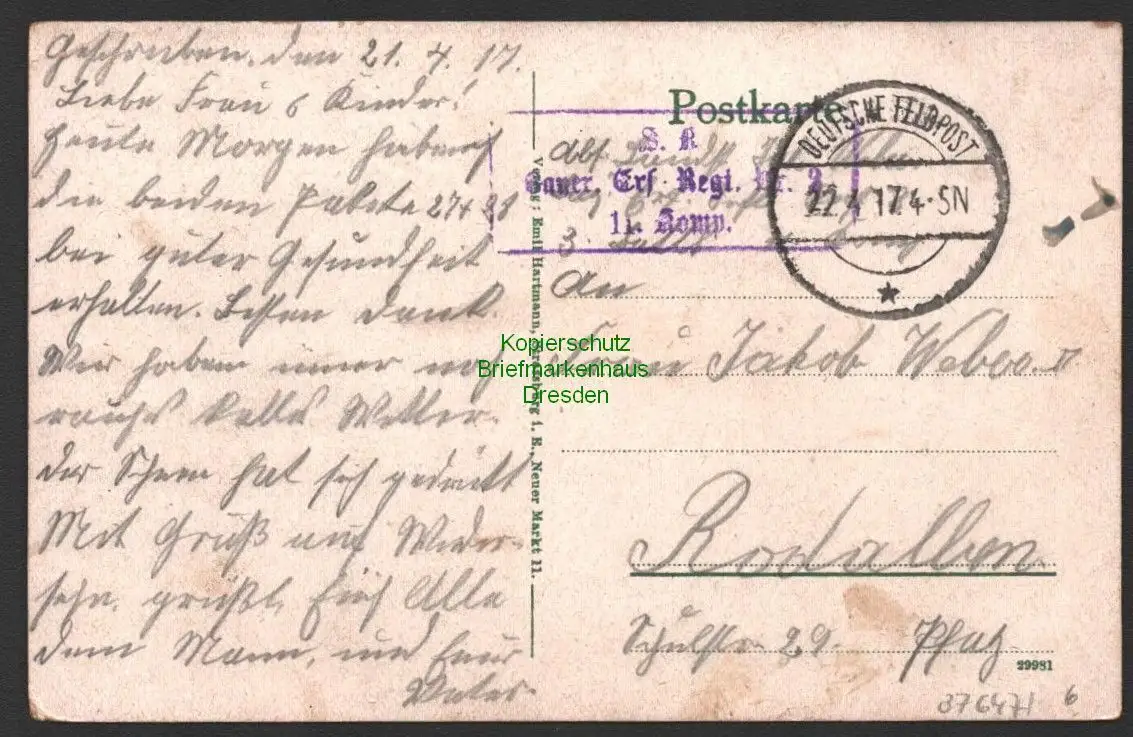 Geschrieben, den 21. 4. 17.
Liebe Frau & Kinder!
Heute Morgen habe ich
die beiden Pakete 27 + 28
bei guter Gesundheit
erhalten. Besten Dank.
Wir haben imer noch
rauhes kaltes Wetter.
Der Schnee hat sich gedrückt
Mit Gruß auf Wieder-
sehn, grüßt Euch Alle
dein Mann, und Euer
Vater.
Verlag: Emil Hartmann, i. E., Neuer Markt 11.
Postkarte
S. B
Bayer. Ers. Regt. Nr. 2
11. Komp.
DEUTSCHE FELDPOST
22 4 17 4-5N
Abs. Landst.
3.
An
Frau Jakob Weber II
Kopierschutz
Briefmarkenhaus
Dresden
Rodalben
Schulstr. 29. Pfalz
29981
376471 6